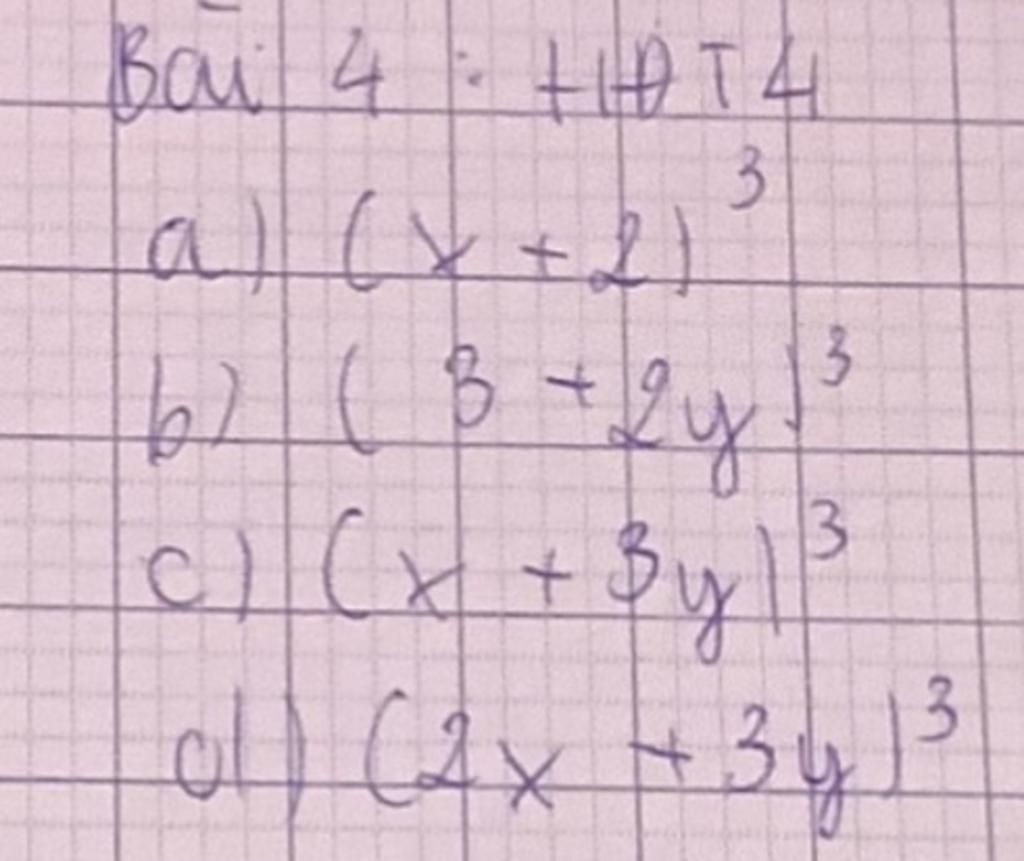 Bài 4 : HĐT 4
a) (x + 2)³
b) (3 + 2y)³
c) (x + 3y)³
d) (2x + 3y)³